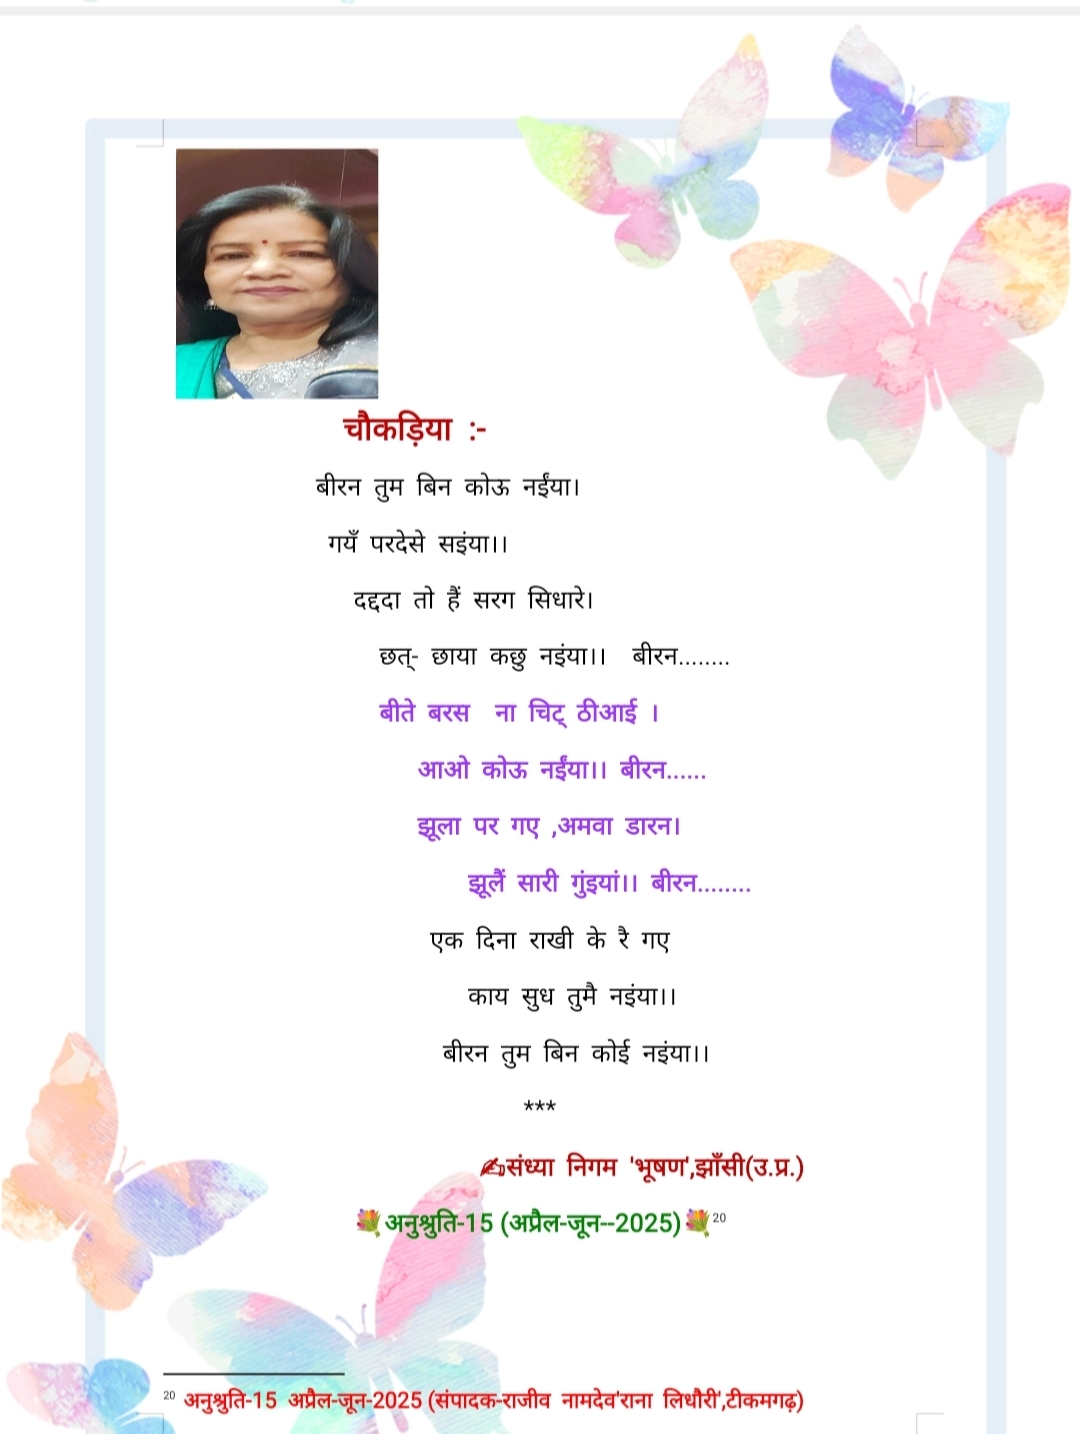 चौकड़िया :-
बीरन तुम बिन कोऊ नईंया।
गयँ परदेसे सइंया।।
दद्ददा तो हैं सरग सिधारे।
छत्- छाया कछु नइंया।। बीरन........
बीते बरस ना चिट् ठीआई ।
आओ कोऊ नईंया।। बीरन......
झूला पर गए ,अमवा डारन।
झूलैं सारी गुंइयां।। बीरन........
एक दिना राखी के रै गए
काय सुध तुमै नइंया।।
बीरन तुम बिन कोई नइंया।।
***
✍️संध्या निगम 'भूषण',झाँसी(उ.प्र.)
💐अनुश्रुति-15 (अप्रैल-जून--2025)💐20
20 अनुश्रुति-15 अप्रैल-जून-2025 (संपादक-राजीव नामदेव'राना लिधौरी',टीकमगढ़)